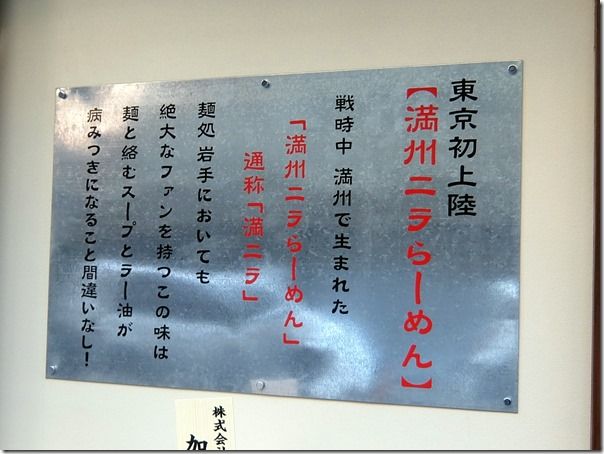 東京初上陸
【満州ニラらーめん】
戦時中 満州で生まれた
「満州ニラらーめん」
通称「満ニラ」
麺処 岩手においても
絶大なファンを持つこの味は
麺と絡むスープとラー油が
病みつきになること間違いなし！
株式会
加